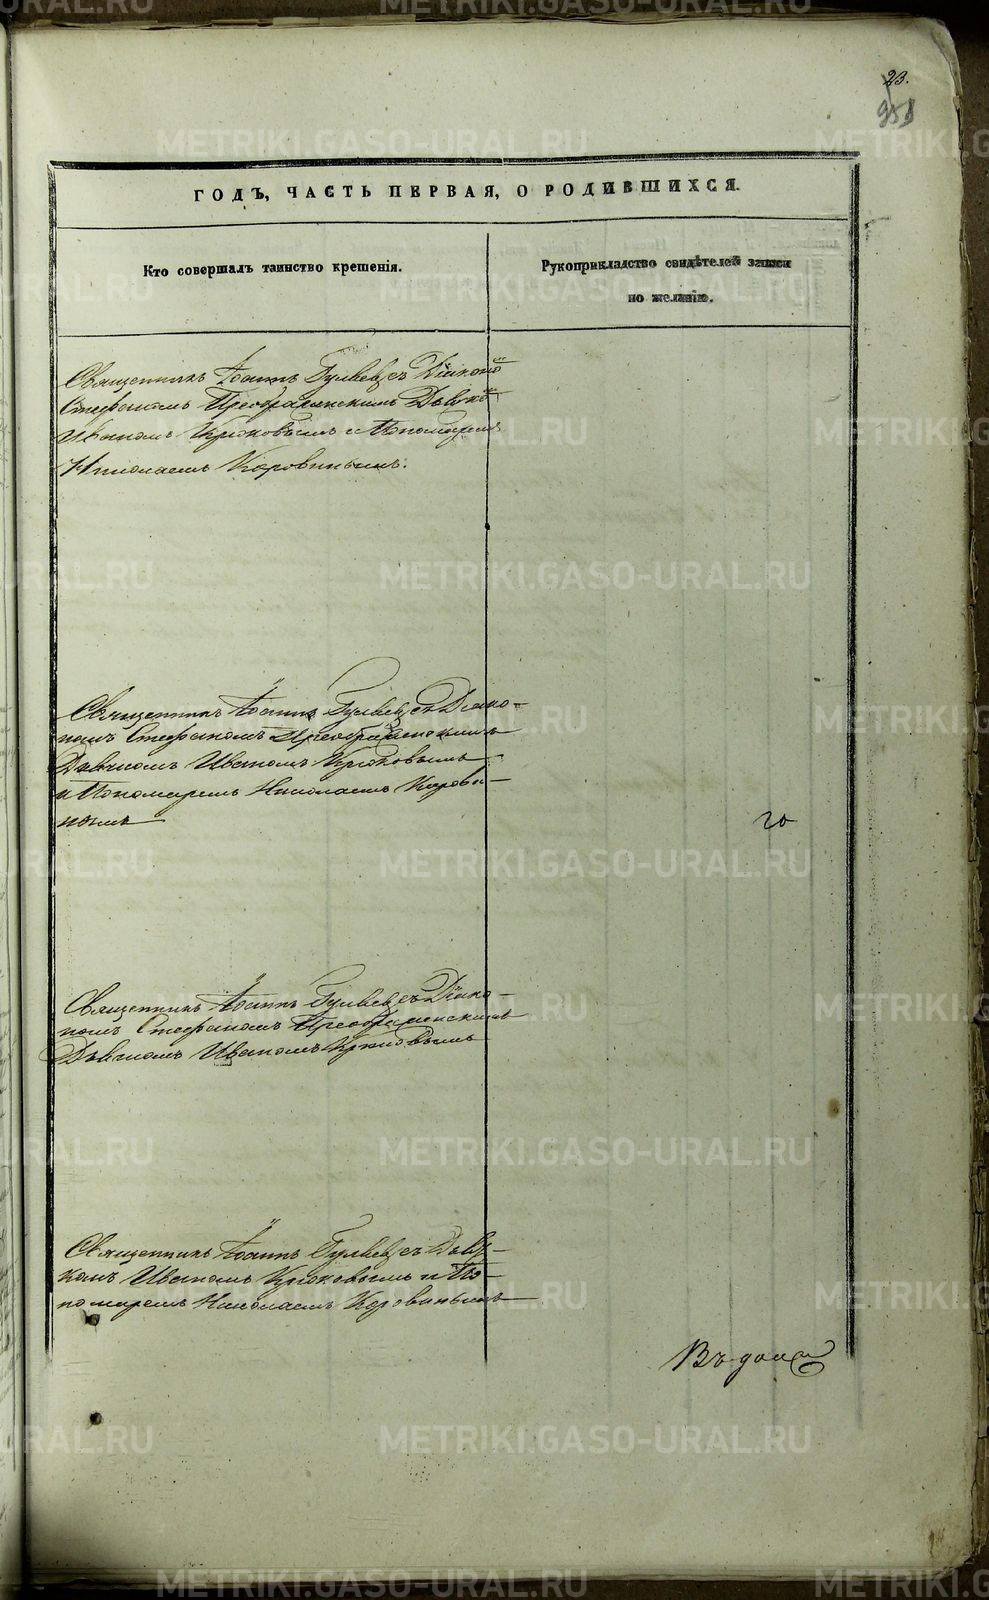 23.
958
ГОДЪ, ЧАСТЬ ПЕРВАЯ, О РОДИВШИХСЯ.
Кто совершалъ таинство крещенія.
Рукоприкладство свидѣтелей записи
по желанію.
Священникъ Іоаннъ Гуляевъ съ Діакономъ
Стефаномъ Преображенскимъ Дьячкомъ
Иваномъ Крюковымъ и Пономаремъ
Николаемъ Коровинымъ.
Священникъ Іоаннъ Гуляевъ съ Діако-
номъ Стефаномъ Преображенскимъ
Дьячкомъ Иваномъ Крюковымъ
и Пономаремъ Николаемъ Корови-
нымъ
го
Священникъ Іоаннъ Гуляевъ съ Діако-
номъ Стефаномъ Преображенскимъ
Дьячкомъ Иваномъ Крюковымъ
Священникъ Іоаннъ Гуляевъ съ Дьяч-
комъ Иваномъ Крюковымъ и По-
номаремъ Николаемъ Коровинымъ
METRIKI.GASO-URAL.RU